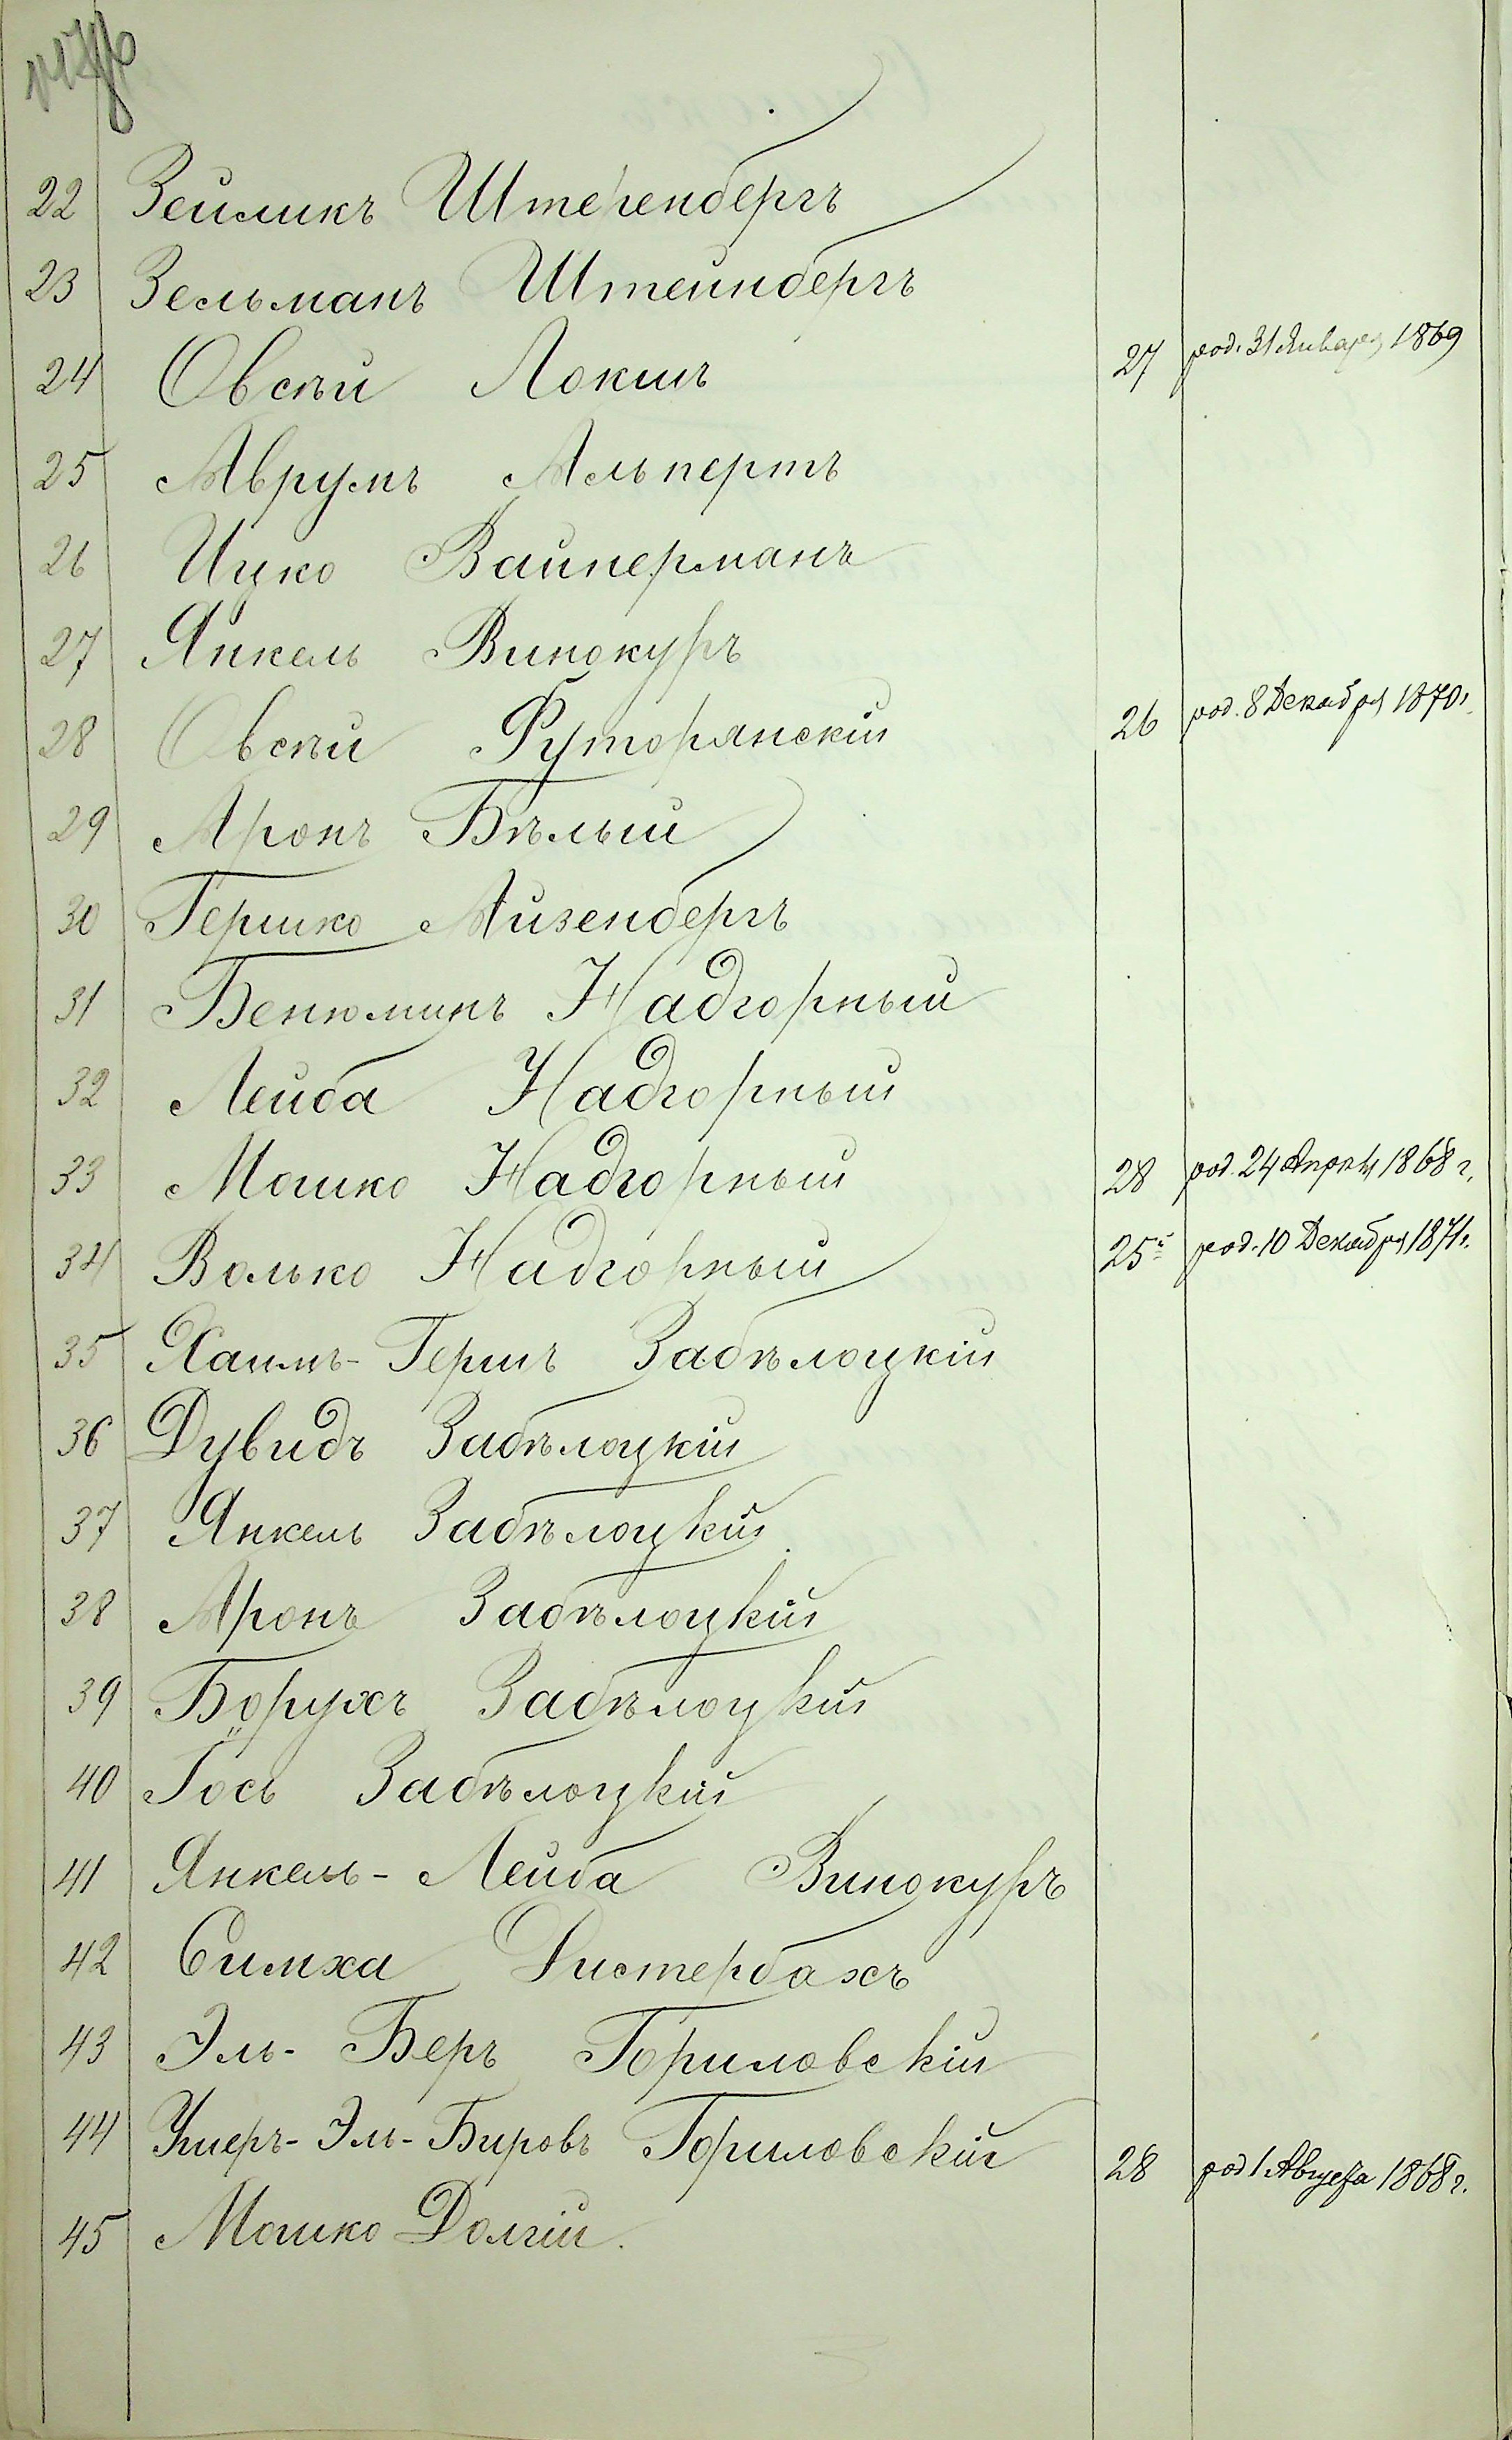 22 Зейликъ Штеренбергъ
23 Зельманъ Штейнбергъ
24 Овсѣй Локшъ 27 род. 31 Января 1869
25 Аврумъ Альпертъ
26 Ицко Вайнерманъ
27 Янкель Винокуръ
28 Овсѣй Футорянскій 26 род. 8 Декабря 1870 г.
29 Аронъ Бѣлый
30 Гершко Айзенбергъ
31 Бенюминъ Надгорный
32 Лейба Надгорный
33 Мошко Надгорный 28 род. 24 Апрѣля 1868 г.
34 Волько Надгорный 25 род. 10 Декабря 1871 г.
35 Хаимъ-Гершъ Забѣлоцкій
36 Дувидъ Забѣлоцкій
37 Янкель Забѣлоцкій
38 Аронъ Забѣлоцкій
39 Борухъ Забѣлоцкій
40 Іось Забѣлоцкій
41 Янкель-Лейба Винокуръ
42 Симха Дистербахъ
43 Эль-Беръ Гориловскій
44 Ушеръ-Эль-Бировъ Гориловскій 28 род 1 Августа 1868 г.
45 Мошко Долгій.